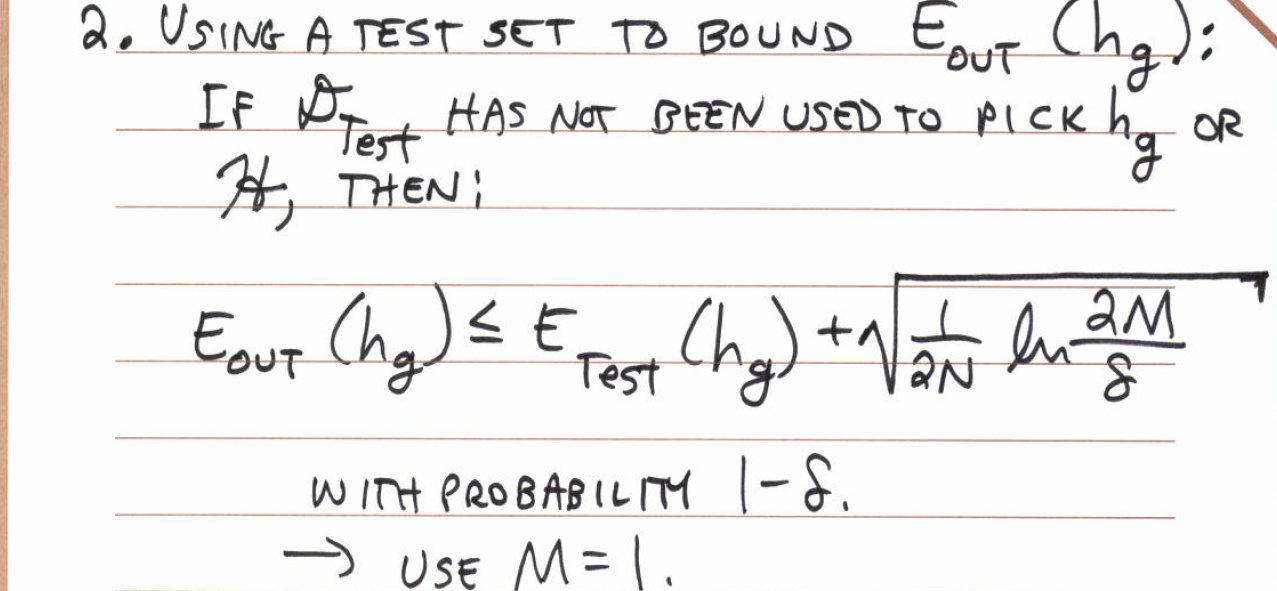 2. USING A TEST SET TO BOUND E_OUT (h_g):
IF 𝒟_Test HAS NOT BEEN USED TO PICK h_g OR
ℋ, THEN:
E_OUT (h_g) ≤ E_Test (h_g) + √(1/2N ln 2M/δ)
WITH PROBABILITY 1-δ.
→ USE M = 1.